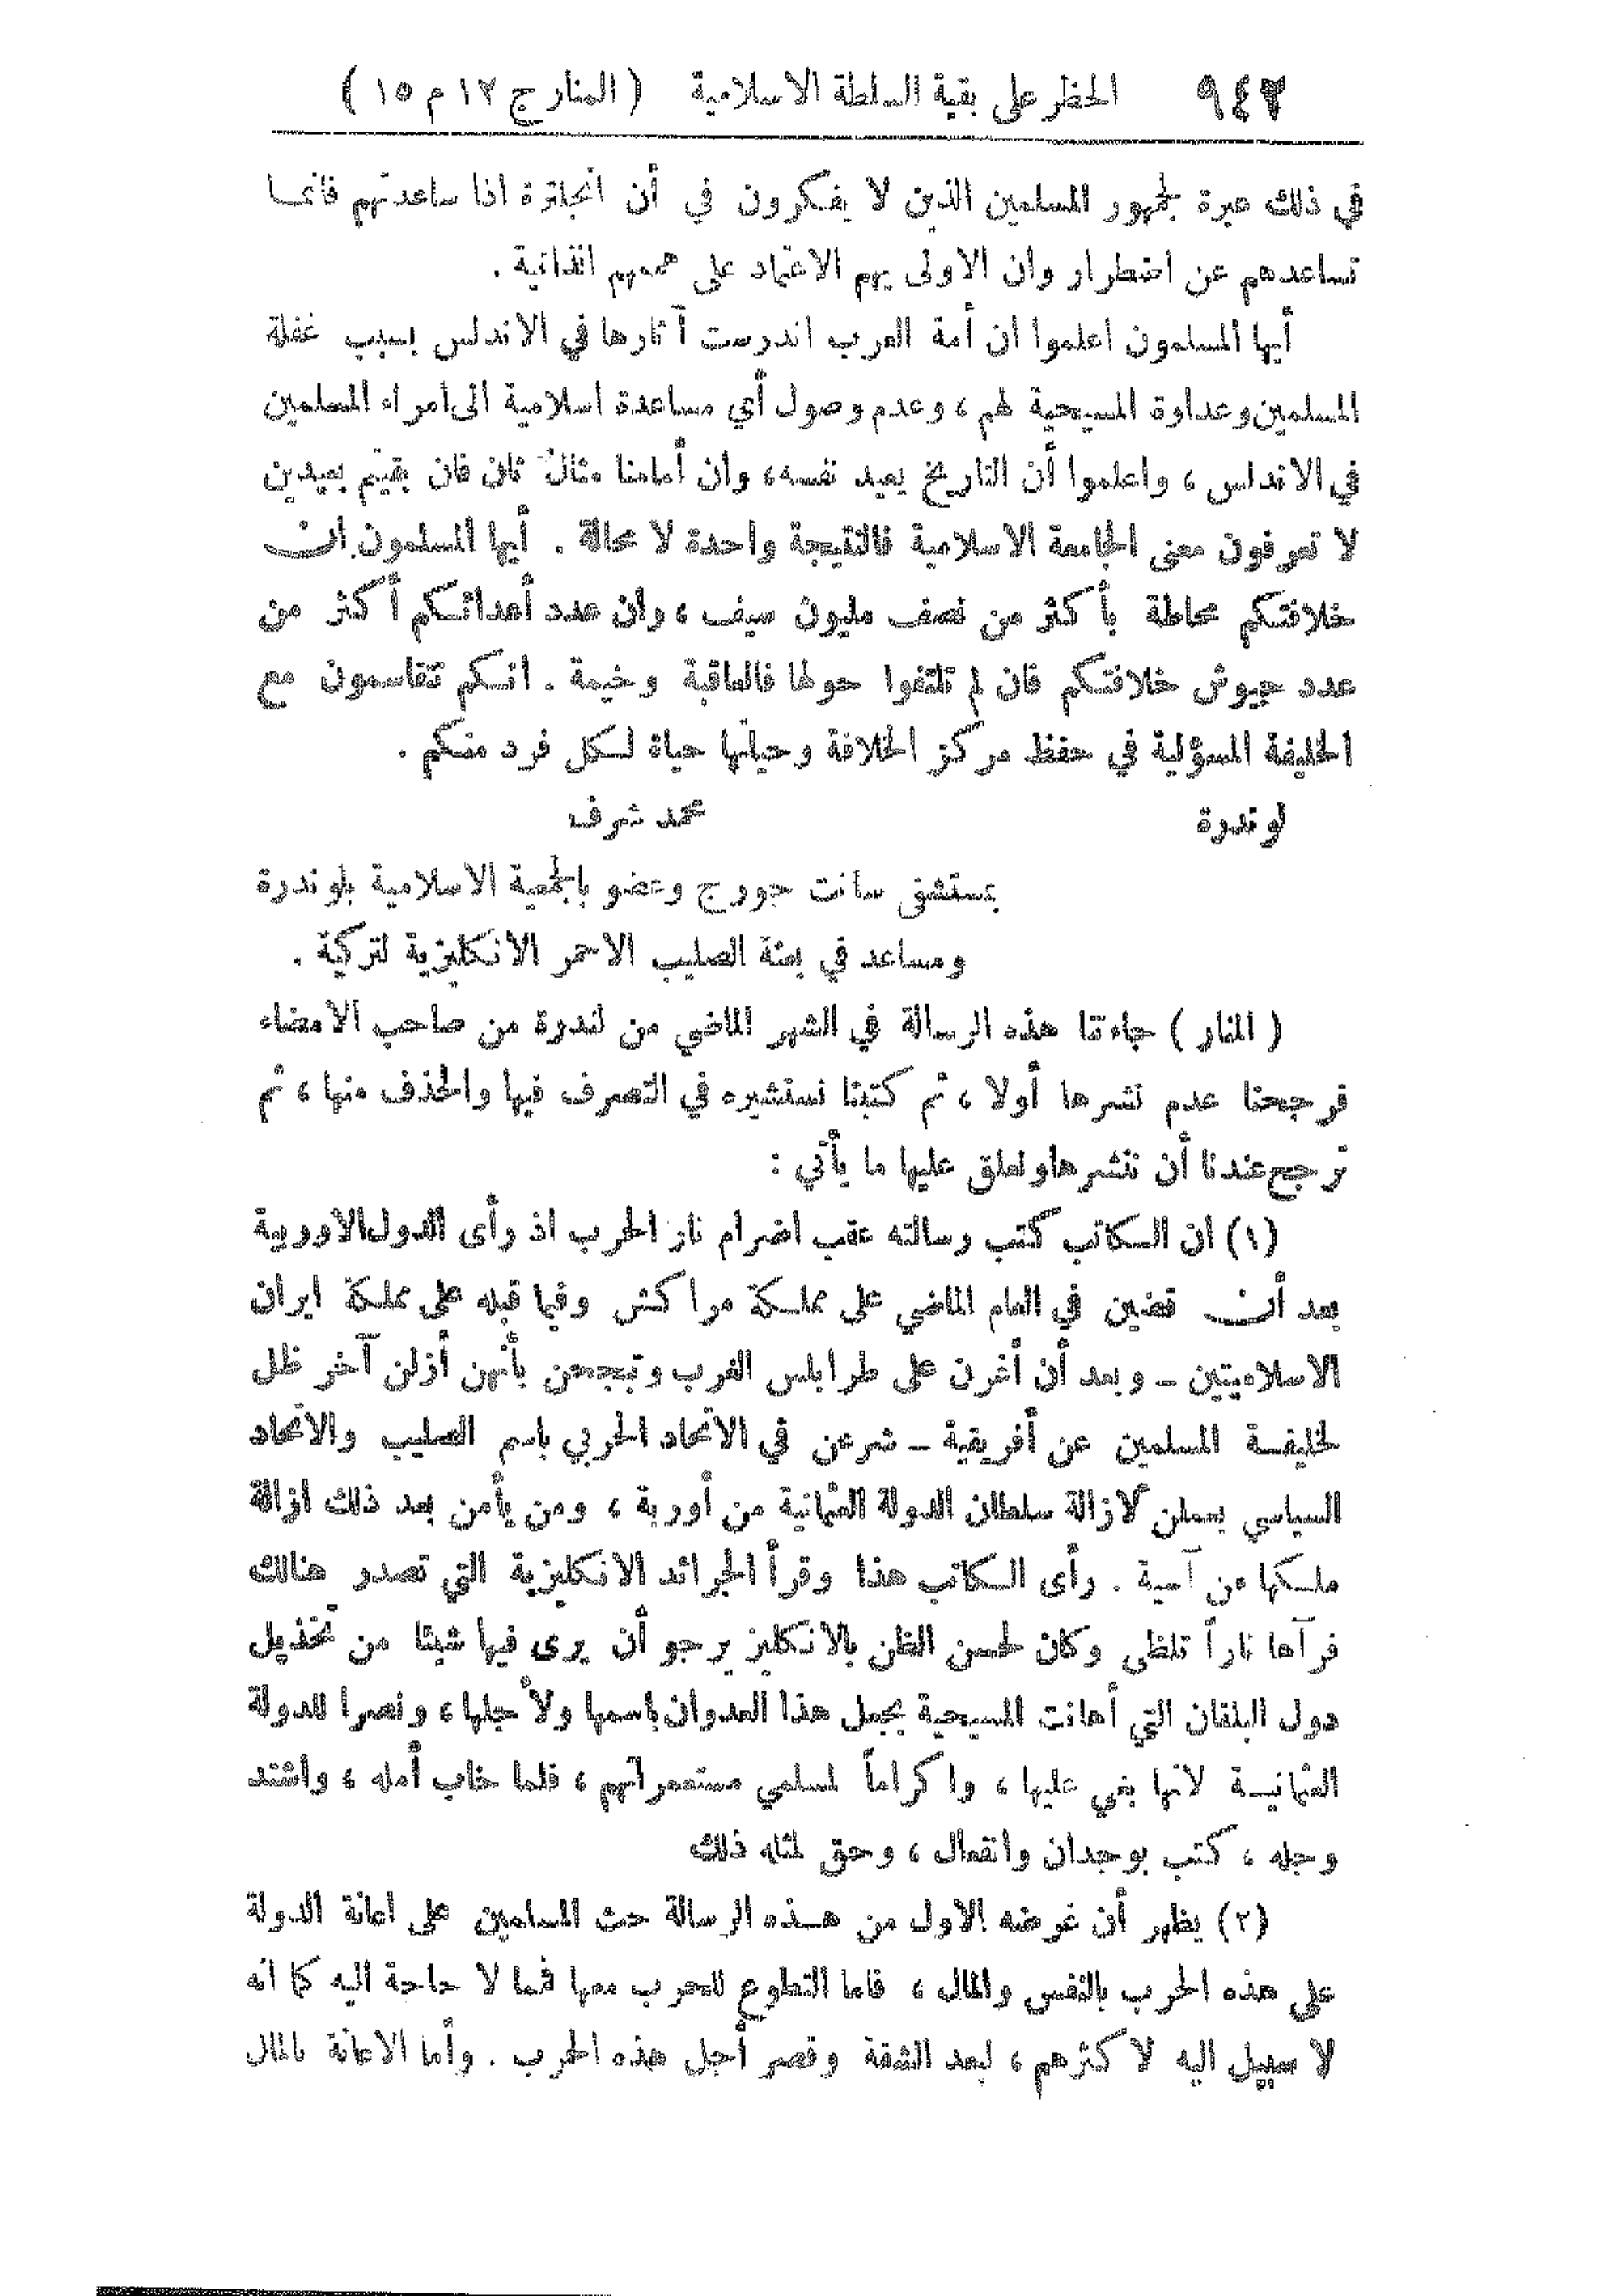 ٩٤٢ الخطر على بقية السلطة الاسلامية ( المنار ج ١٢ م ١٥ )
في ذلك عبرة لجمهور المسلمين الذين لا يفكرون في أن انجلترة اذا ساعدتهم فانما
تساعدهم عن اضطرار وان الاولى بهم الاعتماد على هممهم الذاتية .
أيها المسلمون اعلموا ان أمة العرب اندرست آثارها في الاندلس بسبب غفلة
المسلمين وعداوة المسيحية لهم ، وعدم وصول أي مساعدة اسلامية الى امراء المسلمين
في الاندلس ، واعلموا أن التاريخ يعيد نفسه ، وان أمامنا مثال ثان فان بقيتم بعيدين
لا تعرفون معنى الجامعة الاسلامية فالنتيجة واحدة لا محالة . أيها المسلمون ان
خلافتكم محاطة بأكثر من نصف مليون سيف ، وان عدد أعدائكم أكثر من
عدد جيوش خلافتكم فان لم تلتفوا حولها فالعاقبة وخيمة . انكم تتقاسمون مع
الخليفة المسؤلية في حفظ مركز الخلافة وحياتها حياة لكل فرد منكم .
لوندرة محمد شرف
بمستشفى سانت جورج وعضو بالجمعية الاسلامية بلوندرة
ومساعد في بعثة الصليب الاحمر الانكليزية لتركية .
( المنار ) جاءتنا هذه الرسالة في الشهر الماضي من لندرة من صاحب الامضاء
فرجحنا عدم نشرها أولا ، ثم كتبنا نستشيره في التصرف فيها والحذف منها ، ثم
ترجح عندنا أن ننشرها ونعلق عليها ما يأتي :
(١) ان الكاتب كتب رسالته عقب اضرام نار الحرب اذ رأى الدول الاوربية
بعد أن قضين في العام الماضي على مملكة مراكش وفيما قبله على مملكة ايران
الاسلاميتين ــ وبعد أن أغرن على طرابلس الغرب وتبجحن بأنهن أزلن آخر ظل
لخليفة المسلمين عن أفريقية ــ شرعن في الاتحاد الحربي باسم الصليب والاتحاد
السياسي يعملن لازالة سلطان الدولة العثمانية من أوربة ، ومن يأمن بعد ذلك ازالة
ملكها من آسية . رأى الكاتب هذا وقرأ الجرائد الانكليزية التي تصدر هنالك
فرآها ناراً تلظى وكان لحسن الظن بالانكليز يرجو أن يرى فيها شيئا من تخذيل
دول البلقان التي أهانت المسيحية بجعل هذا العدوان باسمها ولأجلها ، ونصرا للدولة
العثمانية لانها بغي عليها ، واكراماً لمسلمي مستعمراتهم ، فلما خاب أمله ، واشتد
وجله ، كتب بوجدان وانفعال ، وحق لمثله ذلك
(٢) يظهر أن غرضه الاول من هذه الرسالة حث المسلمين على اعانة الدولة
على هذه الحرب بالنفس والمال ، فاما التطوع للحرب معها فما لا حاجة اليه كما انه
لا سبيل اليه لاكثرهم ، لبعد الشقة وقصر أجل هذه الحرب . وأما الاعانة بالمال